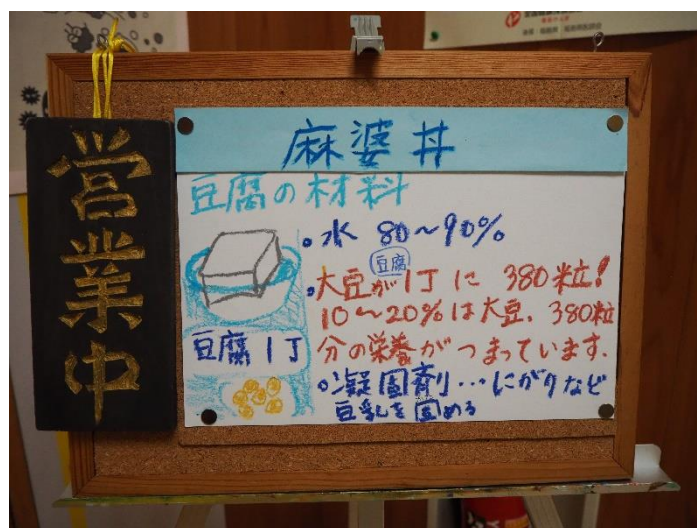 営業中
麻婆丼
豆腐の材料
。水 80～90%
豆腐
。大豆が1丁に 380粒!
10～20%は大豆. 380粒
分の栄養がつまっています.
豆腐1丁
。凝固剤…にがりなど
豆乳を固める